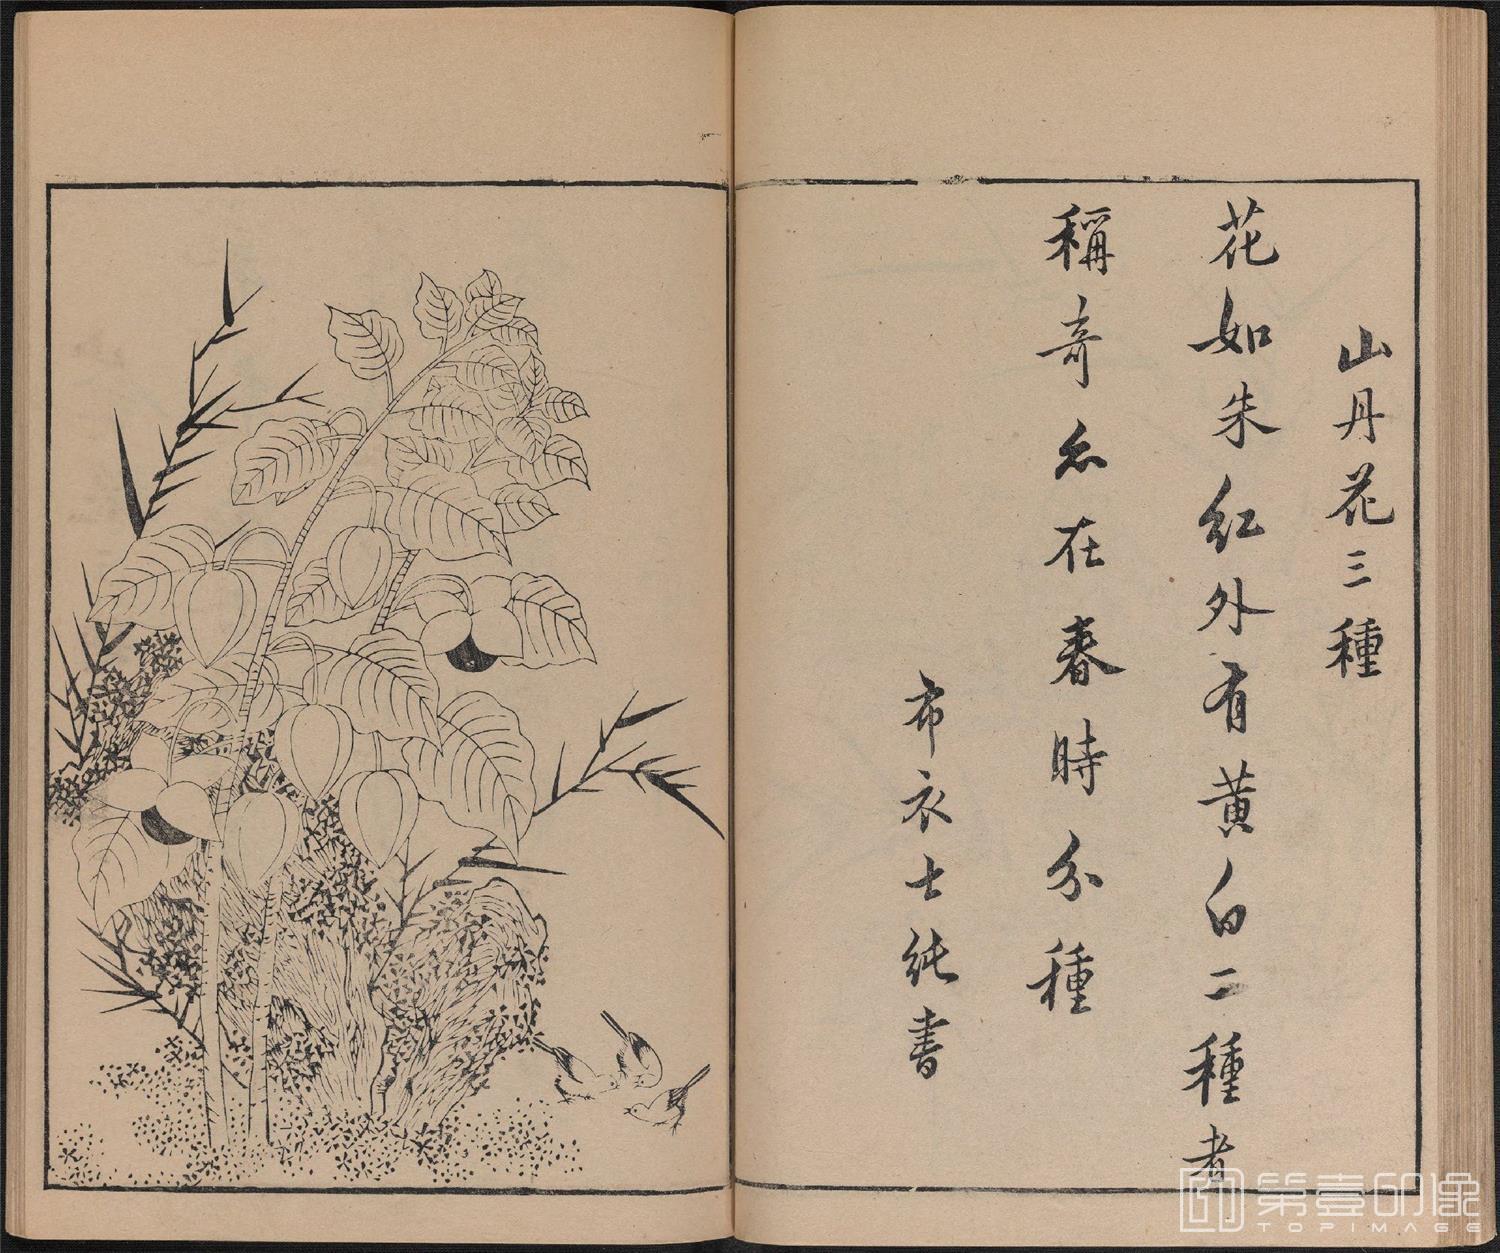 山丹花三種
花如朱紅外有黄白二種者
稱奇亦在春時分種
布衣士純書
第壹印像
TOPIMAGE